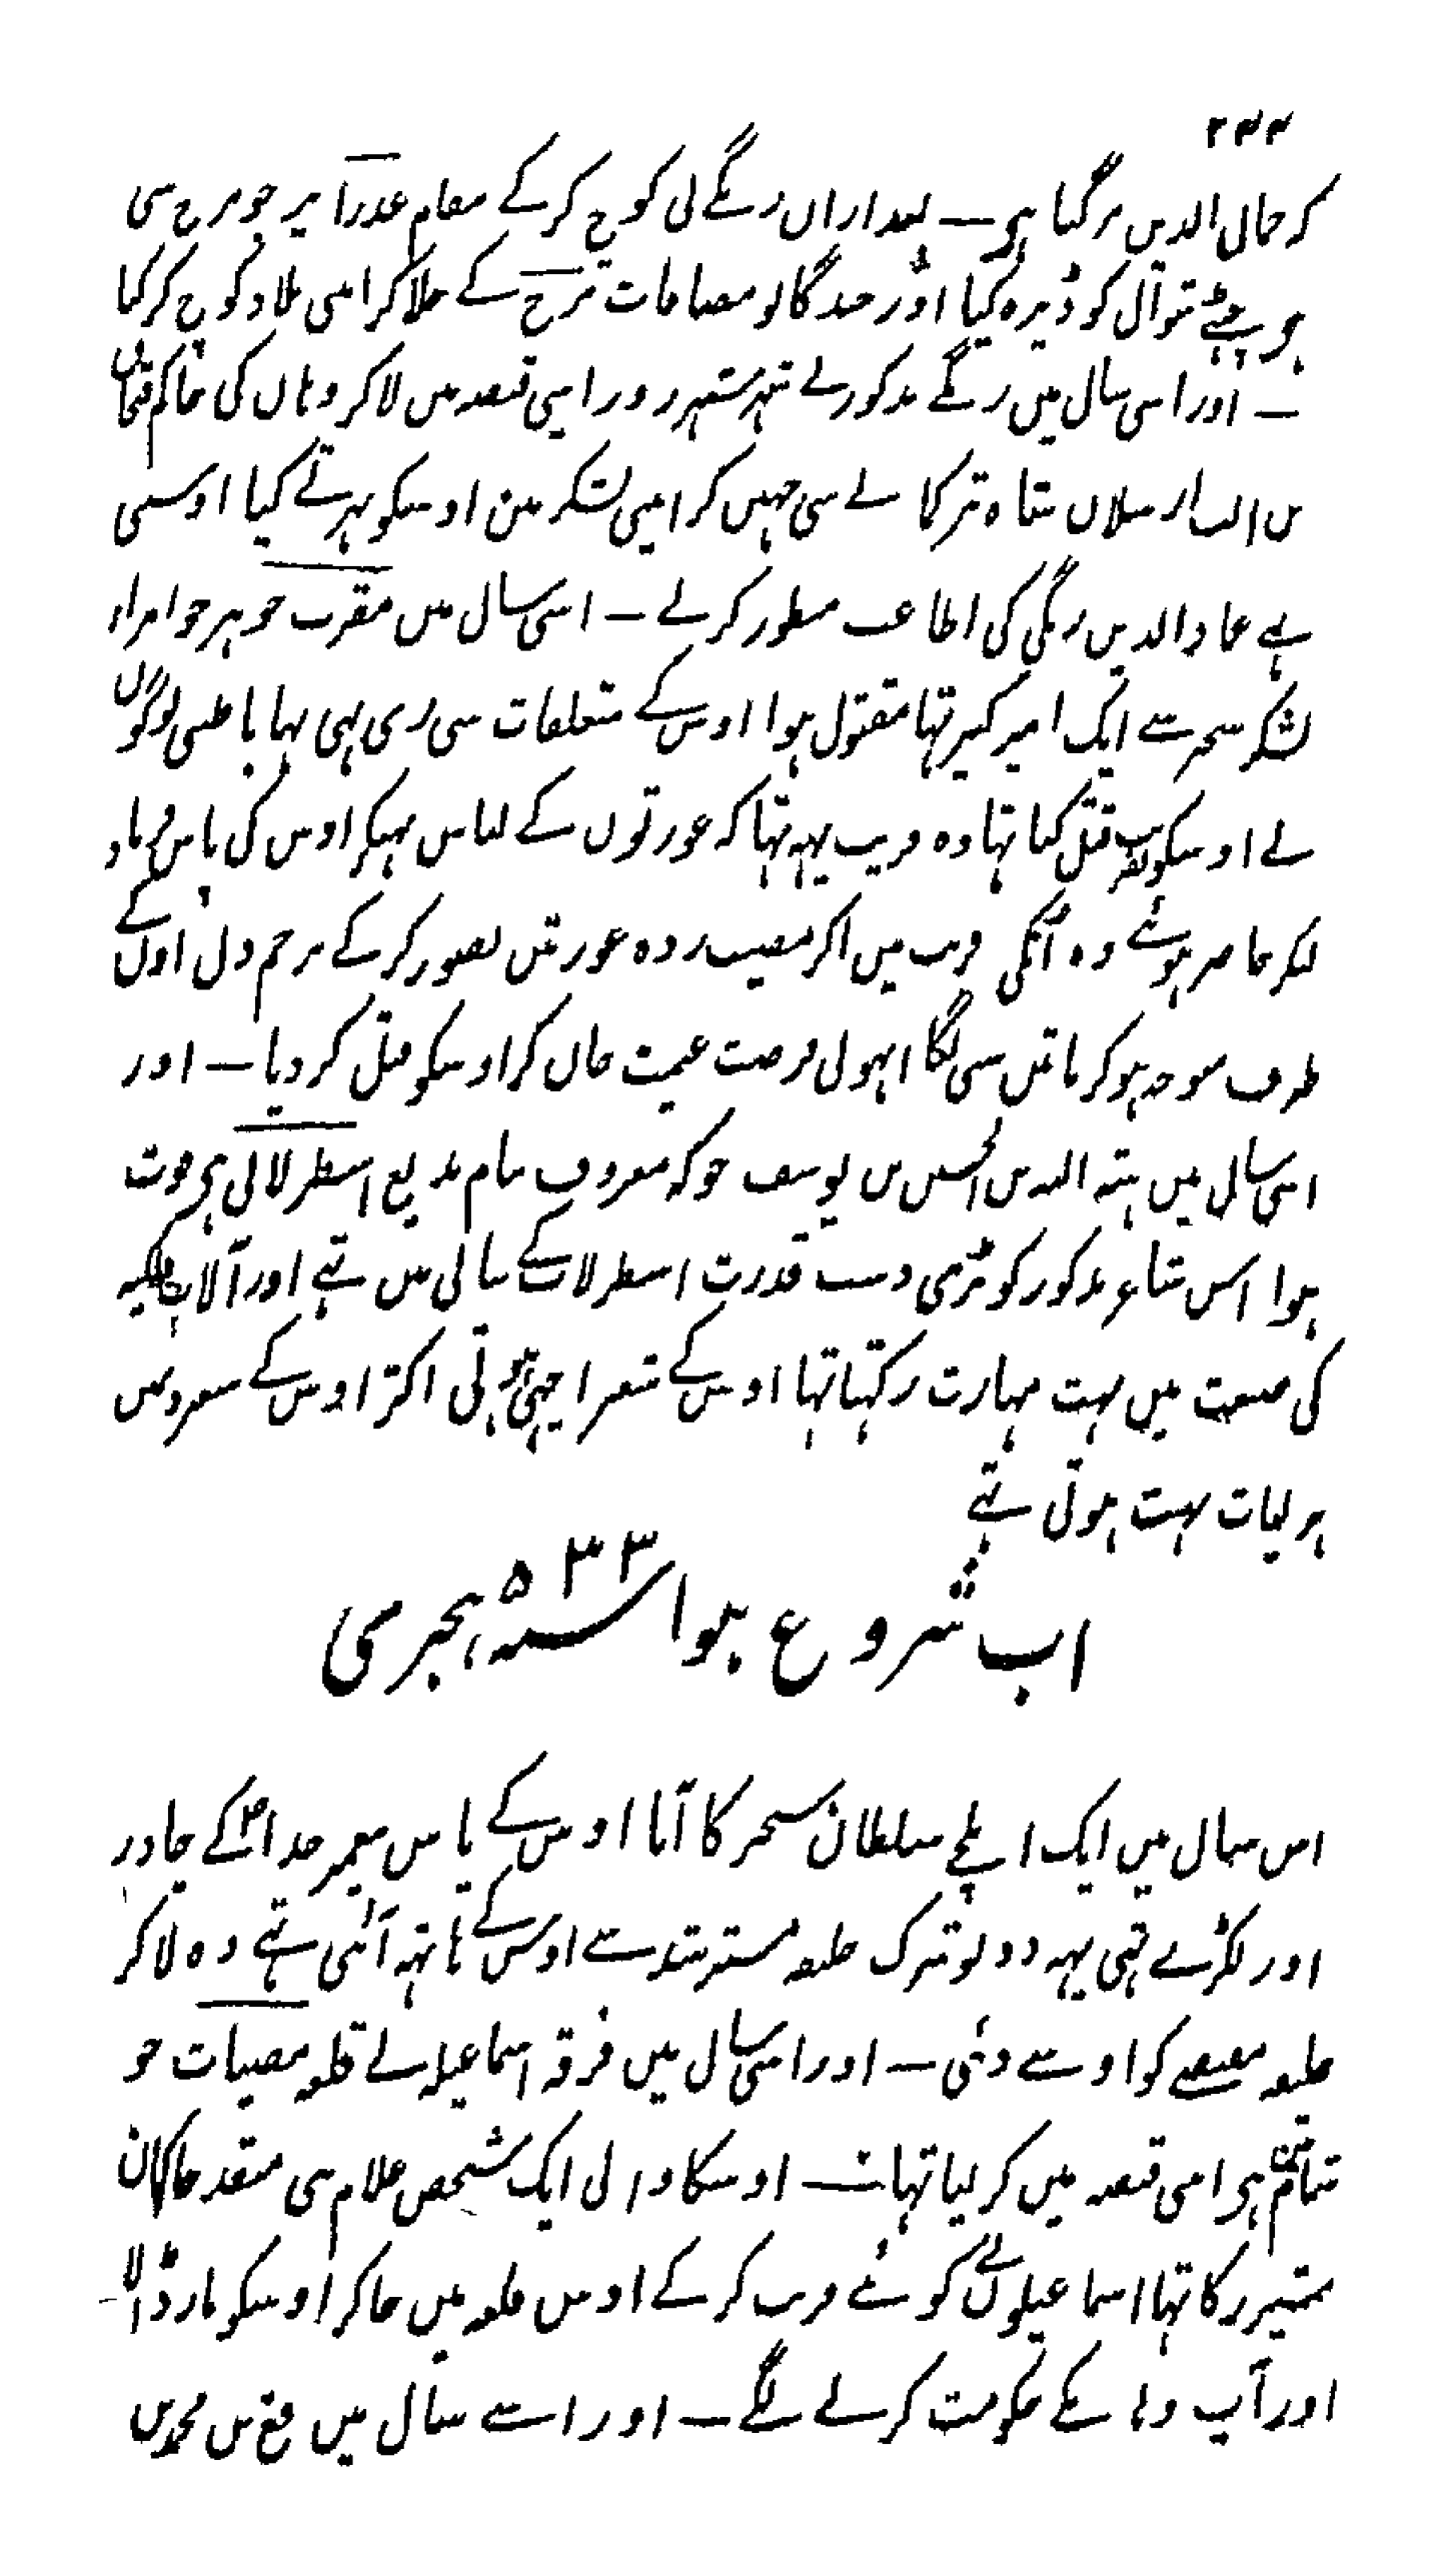 ۲۴۴
کہ جمال الدین مرگیا ہی — بعد ازاں زنگے نی کوچ کرکے مقام عذرا پر جو مرج سی
ہی چہٹے شوال کو ڈیرہ کیا اور چند گانو مضافات مرج کے جلا کر اپنی بلاد کوچ کر گیا
— اور اسی سال میں زنگے مذکور نے شہر شہرزور اپنی قبضہ میں لا کر وہاں کی حاکم قفجاق
بن الب ارسلان شاہ ترکمانے سی چہین کر اپنی لشکر میں اوسکو بہرتے کیا اوسنی
ہے عماد الدین زنگی کی اطاعت منظور کرلے — اسی سال میں مقرب جوہر جو امراء
لشکر سنجر سے ایک امیر کبیر تہا مقتول ہوا اوس کے متعلقات سی ری بہی تہا باطنی لوگوں
نے اوسکو بفریب قتل کیا تہا وہ فریب یہہ تہا کہ عورتوں کے لباس پہنکر اوس کی پاس فریاد
لیکر حاضر ہوئے وہ انکی فریب میں اکر مصیبت زدہ عورتیں تصور کرکے برحم دل اون کے
طرف متوجہ ہوکر باتیں سنی لگا انہوں نے فرصت غنیمت جان کر اوسکو قتل کردیا — اور
اسی سال میں ہبتہ اللہ بن الحسین بن یوسف جو کہ معروف بنام بدیع اسطرلابی ہی فوت
ہوا اس شاعر مذکور کو بڑی دست قدرت اسطرلاب کے بنانی میں تہے اور آلات فلکیہ
کی صنعت میں بہت مہارت رکہتا تہا اوس کے شعر اچہی ہوتی اکثر اوس کے شعروں میں
ہزلیات بہت ہوتی تہے
اب شروع ہوا سنہ ۵۳۳ ہجری
اس سال میں ایک ایلچے سلطان سنجر کا آیا اوس کے پاس پیغمبر خدا ﷺ کے چادر
اور لکڑے تہی یہہ دونو تبرک خلیفہ مسترشد سے اوس کے ہاتہہ آئی تہے وہ لا کر
خلیفہ مقتفے کو اوسے دئی — اور اسی سال میں فرقہ اسماعیلیہ نے قلعہ مصیات جو
شام میں ہی اپنی قبضہ میں کر لیا تہا — اوسکا والی ایک شخص غلام بنی منقذ حاکمان
شیزر کا تہا اسماعیلوں نے کوئے فریب کرکے اوس قلعہ میں جا کر اوسکو مار ڈالا —
اور آپ وہاں کے حکومت کرنے لگے — اور اسے سال میں فتح بن محمد بن